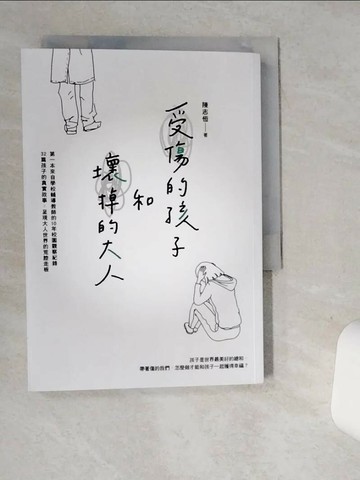 陳志恆 著
受傷的孩子
和
壞掉的大人
第一本來自學校輔導教師的10年校園觀察紀錄
32篇孩子的真實故事 呈現大人世界的荒腔走板
孩子是世界最美好的總和
帶著傷的我們,怎麼做才能和孩子一起獲得幸福?